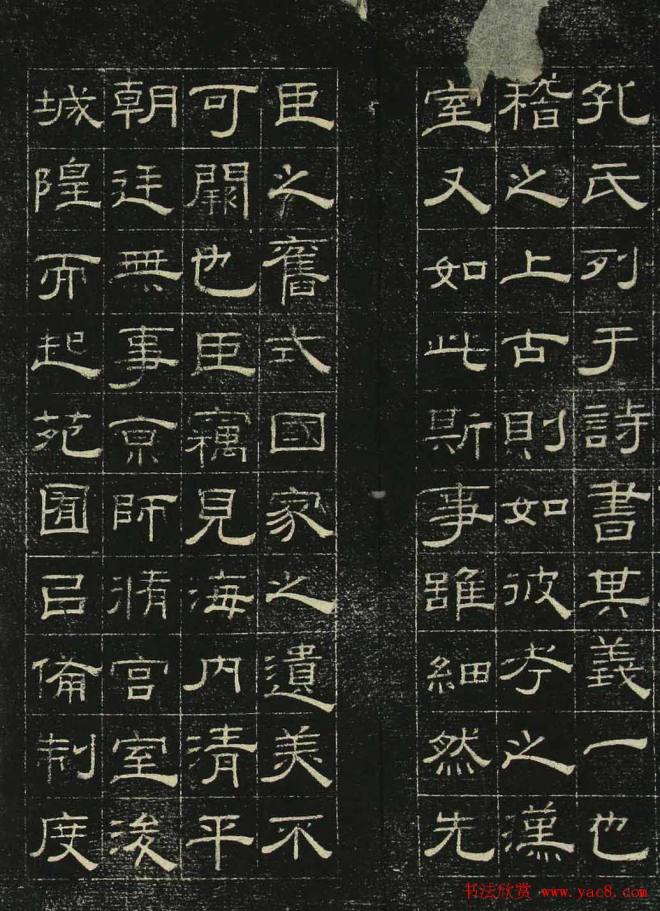 孔氏列于詩書其義一也
稽之上古則如彼考之漢
室又如此斯事雖細然先
臣之舊式國家之遺美不
可闕也臣竊見海内清平
朝廷無事京師脩宫室浚
城隍而起苑囿㠯俻制度
书法欣赏 www.yac8.com